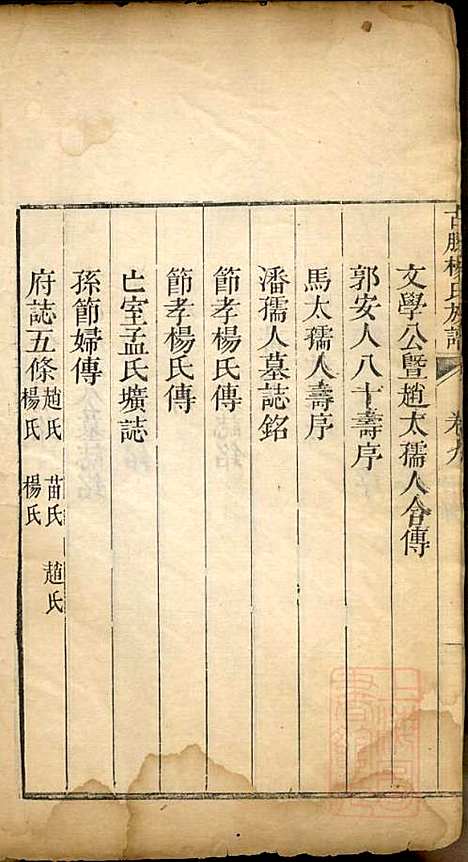 古滕楊氏族譜 卷九
文學公暨趙太孺人合傳
郭安人八十壽序
馬太孺人壽序
潘孺人墓誌銘
節孝楊氏傳
節孝楊氏傳
亡室孟氏壙誌
孫節婦傳
府誌五條 趙氏 苗氏 趙氏 楊氏 楊氏